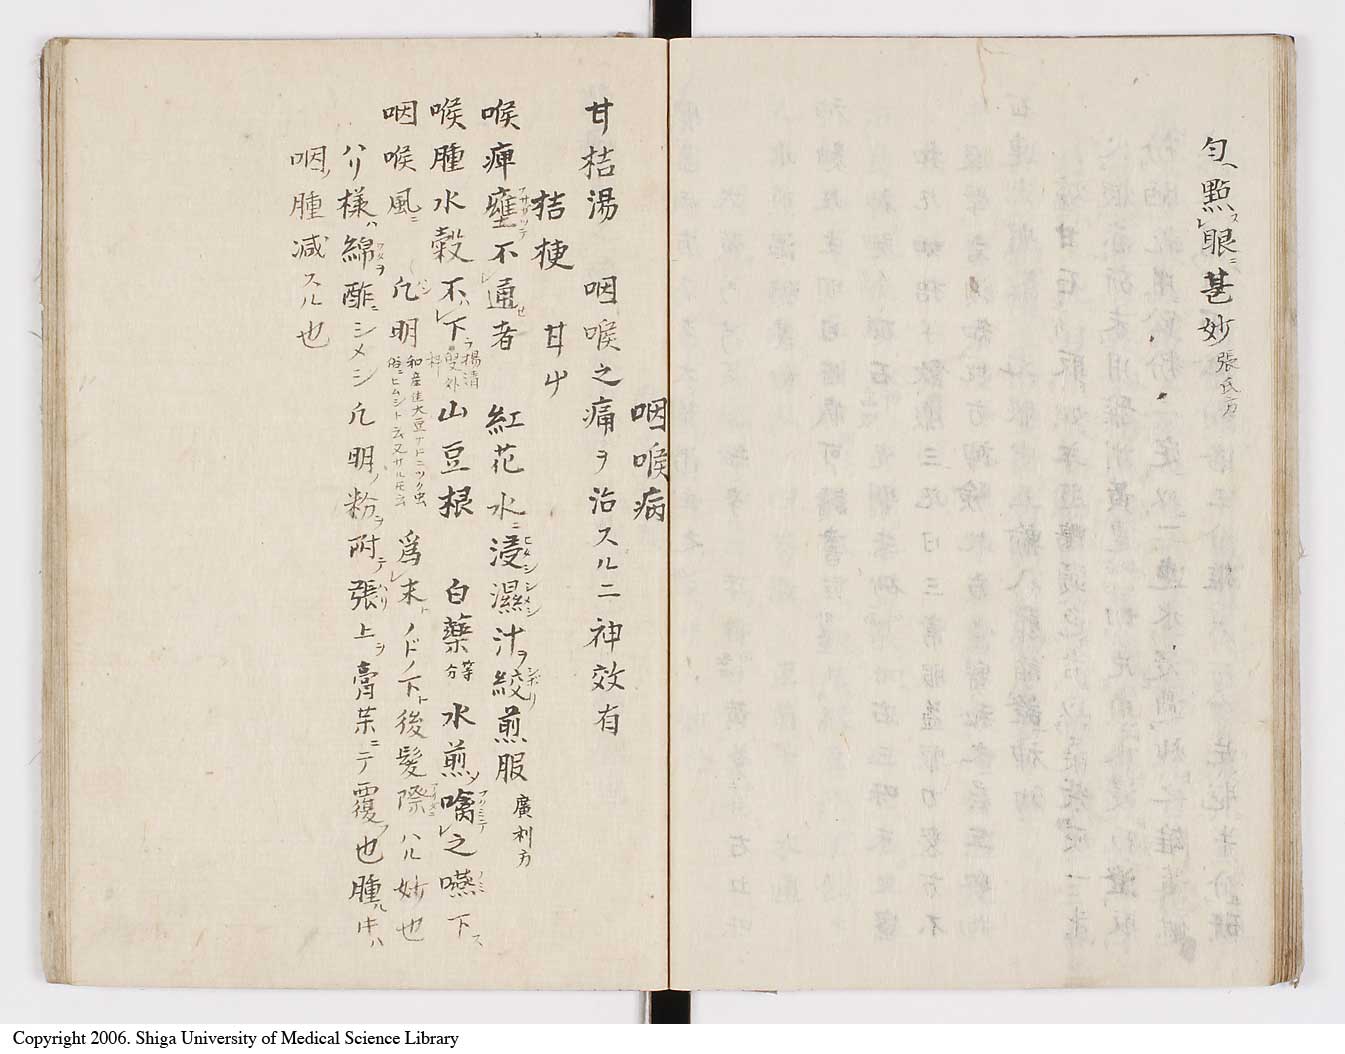 匀、點ス眼ニ甚妙 張氏方
咽喉病
甘桔湯 咽喉之痛ヲ治スルニ神效有
桔梗 甘屮
喉痺壅フサガツテ不通せ者 紅花水ニ浸ヒタシ濕シメシ汁ヲ絞シボリ煎服 廣利方
喉腫水穀不下ラ 楊清叟外科 山豆根 白藥等分 水煎ソ噙フクミテ之嚥ノミ下ス
咽喉風ニ 凢明 和産佳大豆ナドニツク虫 俗ニヒムシト云又サルモ云 爲末ト ノドノ下ト後髮際アイダニハル妙也
ハリ様ハ綿ワタヲ酢ニシメシ凢明ノ粉ヲ附テ張ハリ上ヲ膏茱ニテ覆フ也腫ルヽ中ハ
咽ノ腫減スル也
Copyright 2006. Shiga University of Medical Science Library